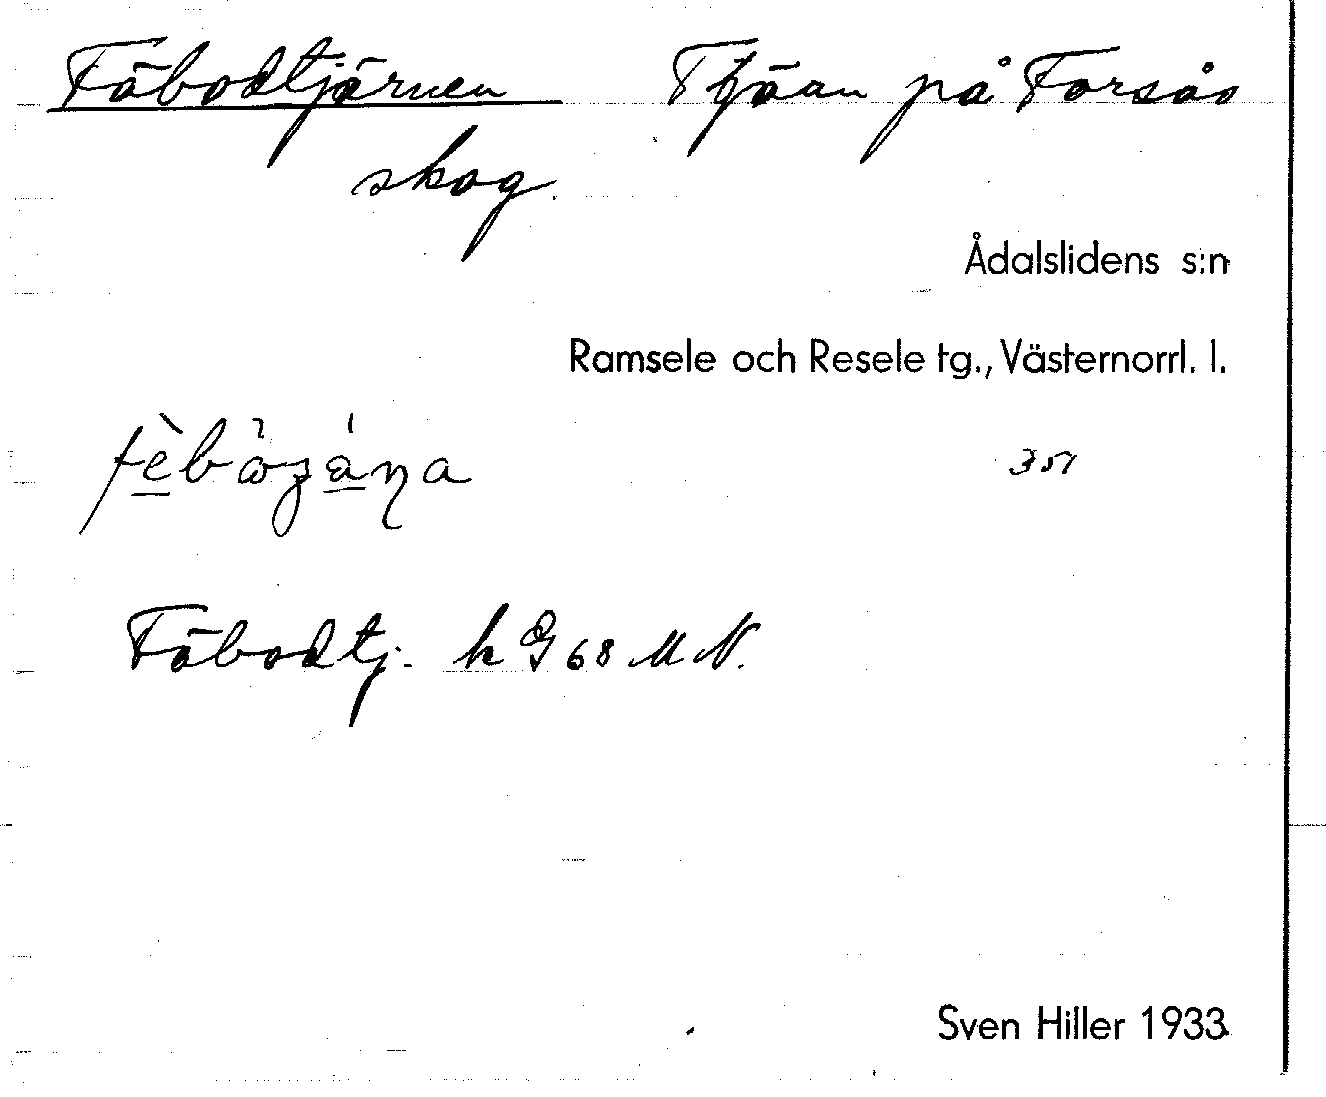 Fäbodtjärnen Tjärn på Forsås
skog.
Ådalslidens s:n
Ramsele och Resele tg., Västernorrl. l.
351
Fäbodtj. k G 68 M N.
Sven Hiller 1933